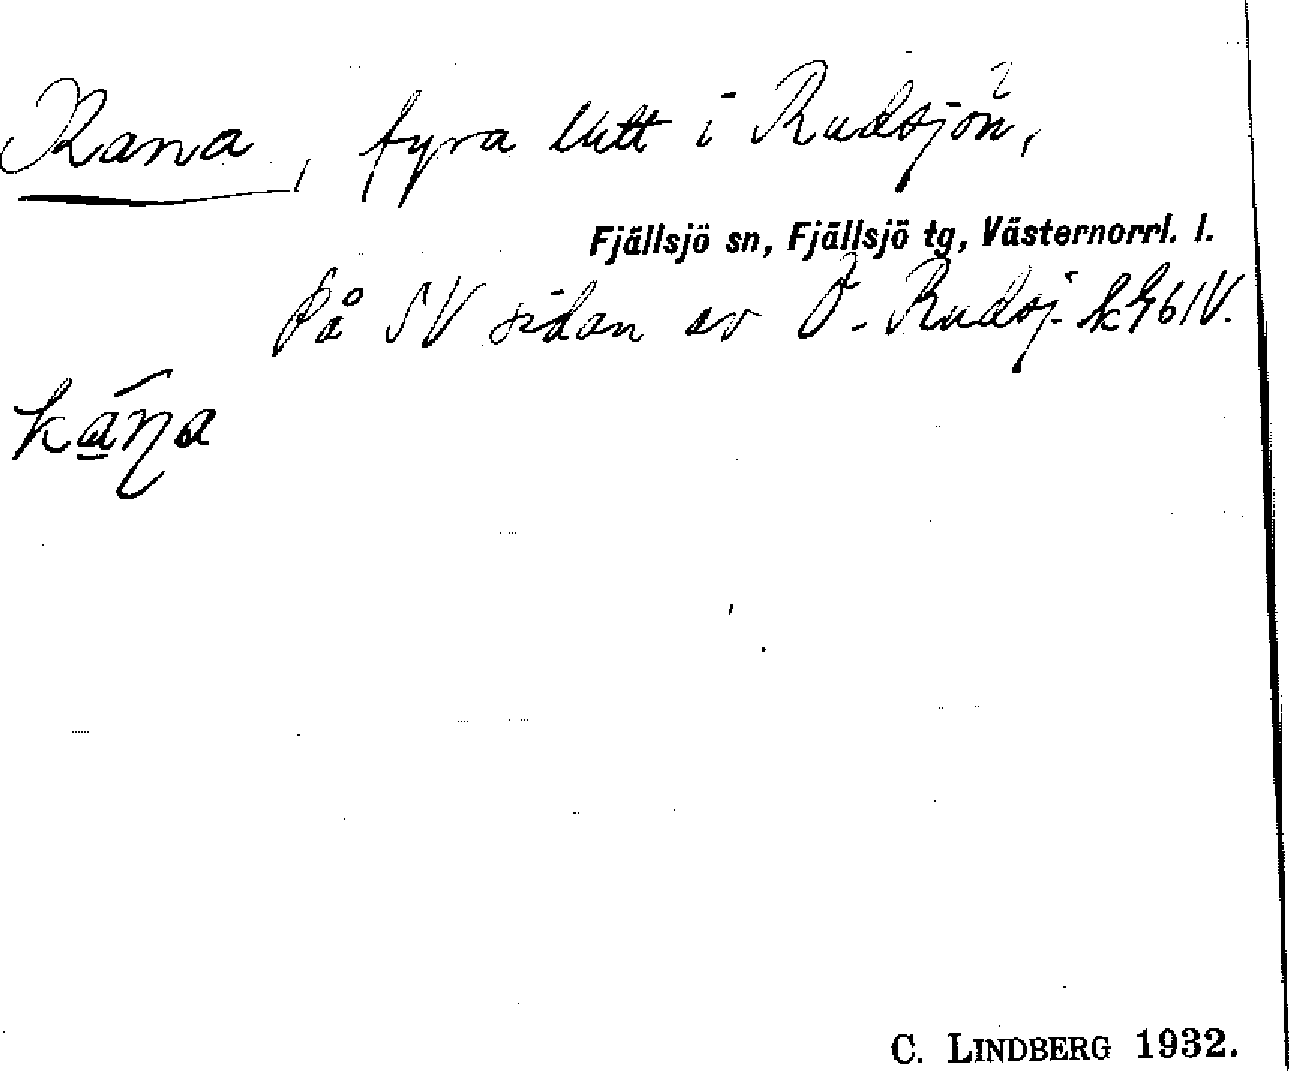 Kana, fyra lutt i Rudsjön,
Fjällsjö sn, Fjällsjö tg, Västernorrl. l.
på SV sidan av Ö. Rudsj.
kana
C. LINDBERG 1932.